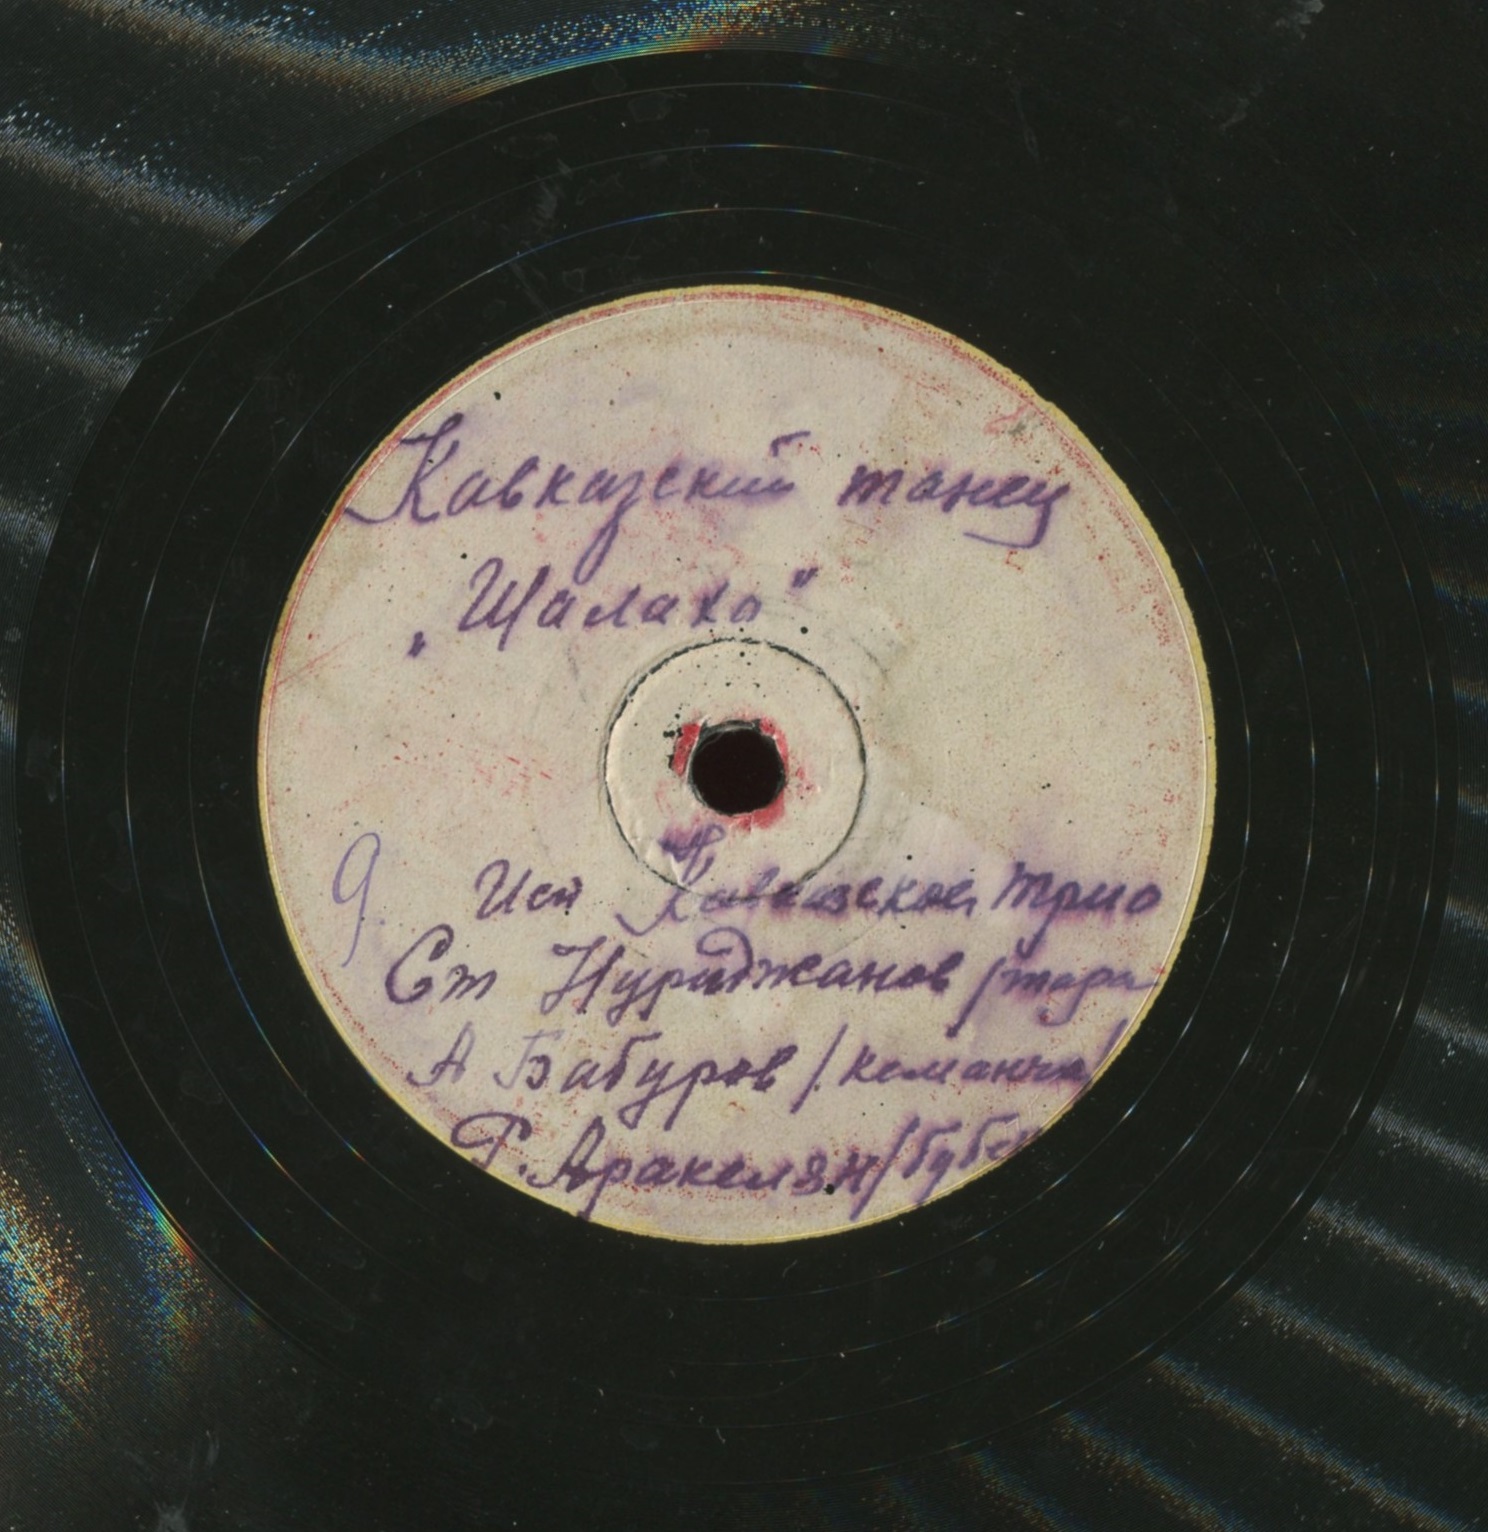 Кавказский танец
„Шалахо"
9. Исп Кавказское трио
Ст Нуриджанов /тара
А Бабуров /кеманча/
Г. Аракелян /бубе